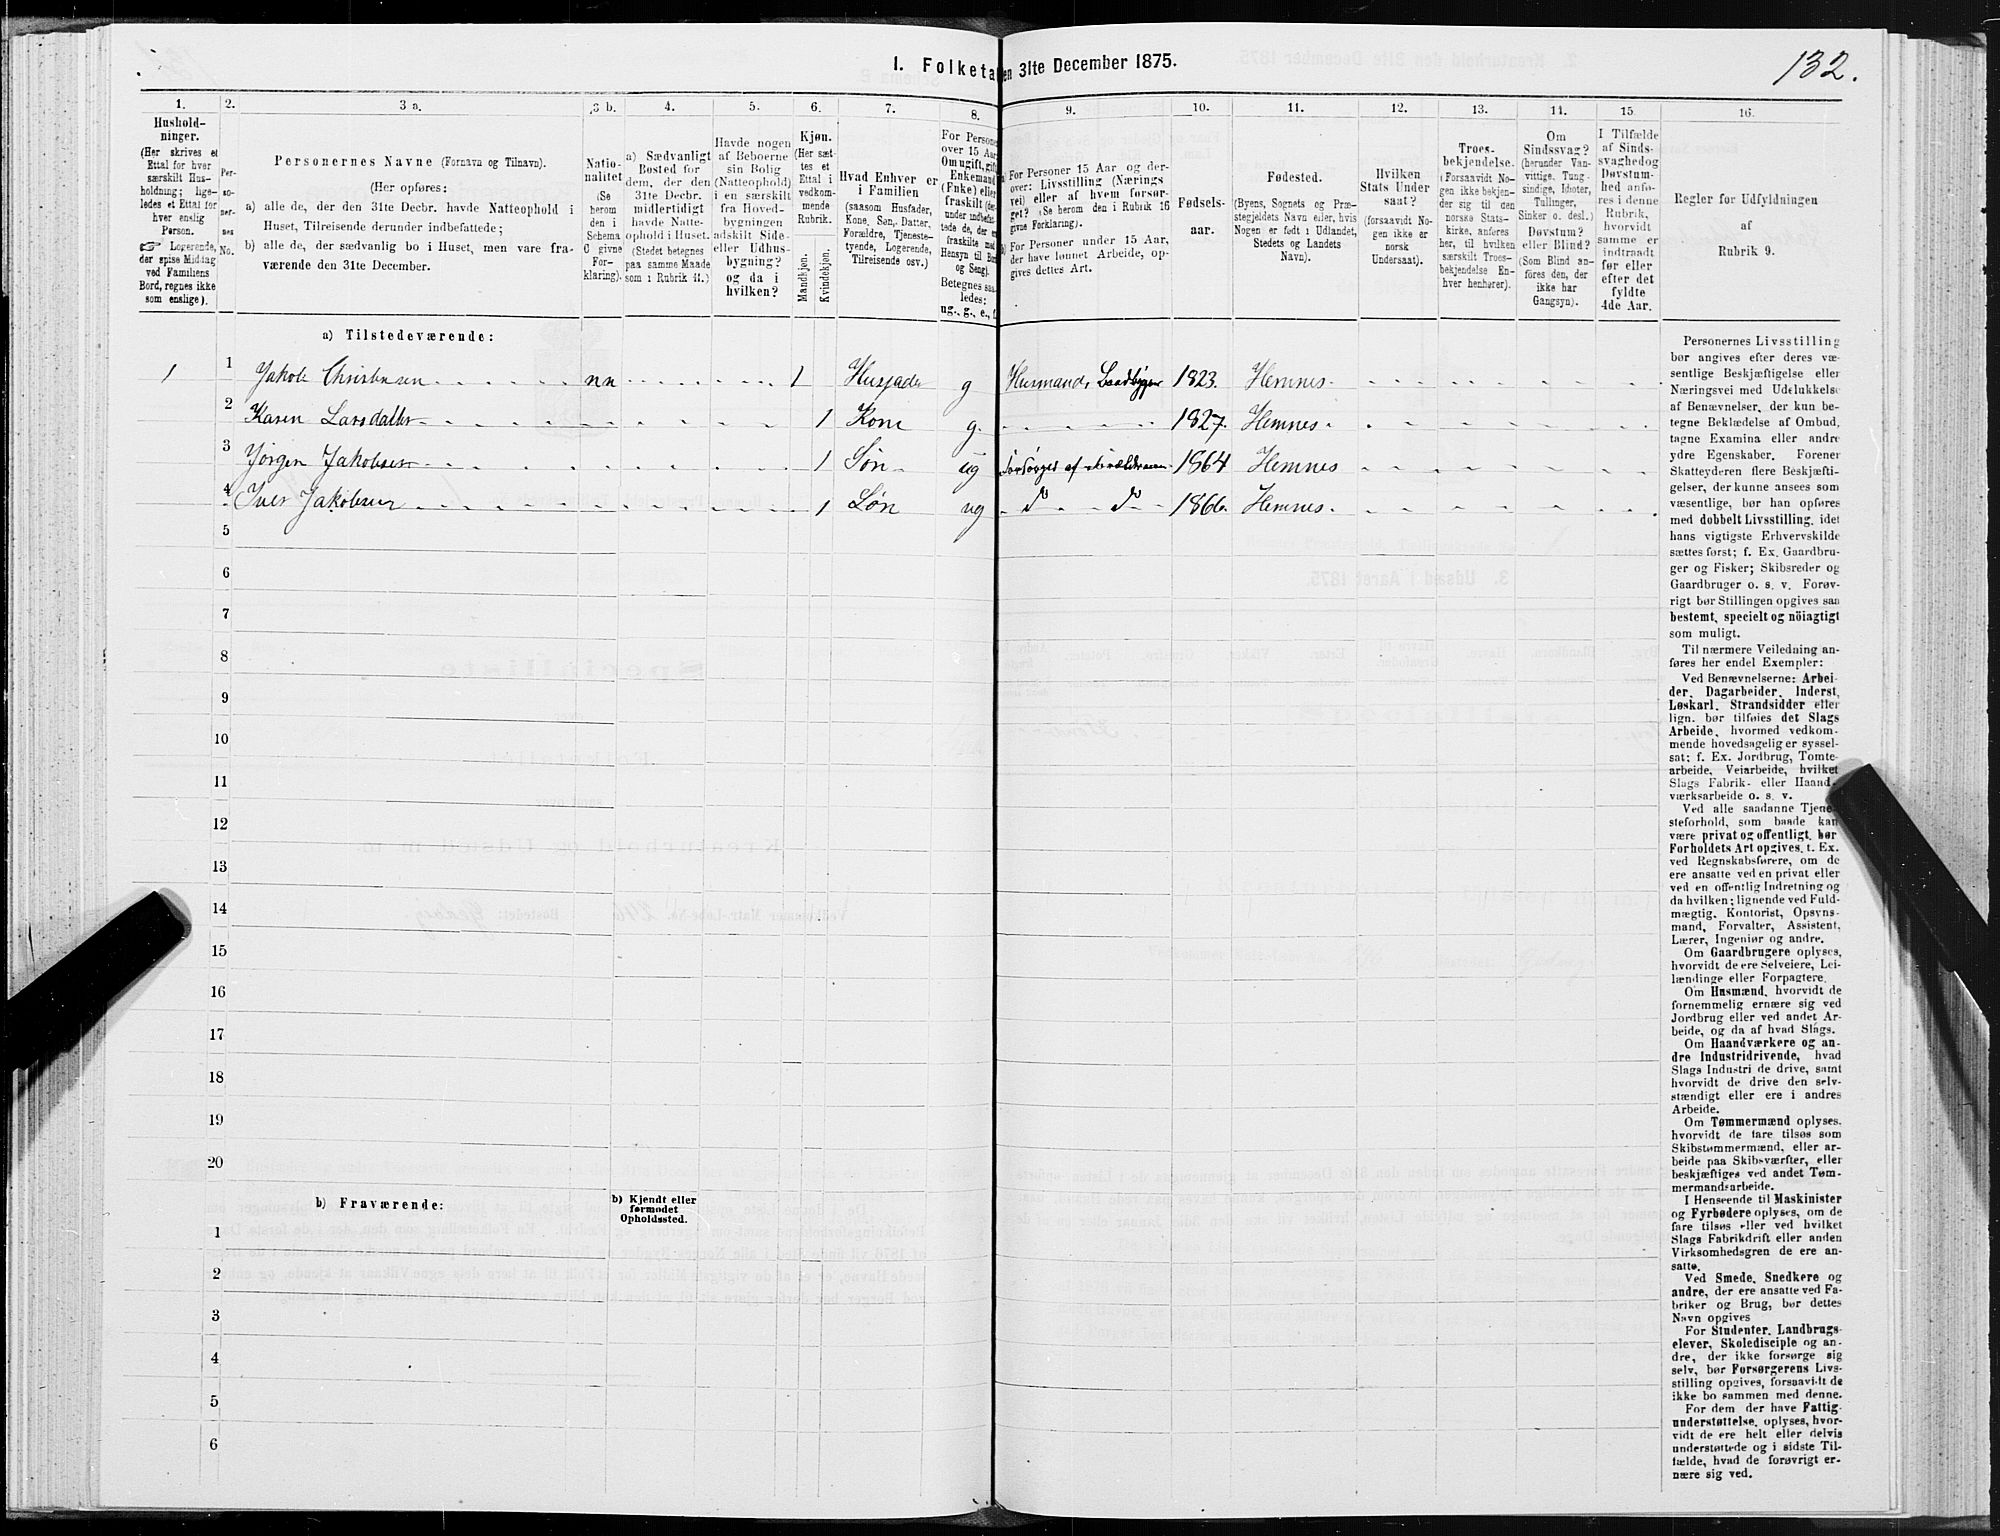 132.
1. Folketa en 31te December 1875.
1. 2. 3 a. 3 b. 4. 5. 6. 7. 8. 9. 10. 11. 12. 13. 14. 15. 16.
Hushold-
ninger.
(Her skrives et
Ettal for hver
særskilt Hus-
holdning; lige-
ledes et Ettal for
hver enslig
Person.
Logerende,
der spise Middag
ved Familiens
Bord, regnes ikke
som enslige).
Per-
so-
ner-
nes
No.
Personernes Navne (Fornavn og Tilnavn).
(Her opføres:
a) alle de, der den 31te Decbr. havde Natteophold i
Huset, Tilreisende derunder indbefattede;
b) alle de, der sædvanlig bo i Huset, men vare fra-
værende den 31te December.
Natio-
nalitet
(Se
herom
den i
Schema
O givne
For-
klaring).
a) Sædvanligt
Bosted for
dem, der den
31te Decbr.
midlertidigt
havde Natte-
ophold i Huset.
(Stedet betegnes
paa samme Maade
som i Rubrik 11.)
Havde nogen
af Beboerne
sin Bolig
(Natteophold)
i en særskilt
fra Hoved-
bygningen
adskilt Side-
eller Udhus-
bygning?
og da i
hvilken?
Kjøn.
(Her sæt-
tes et
Ettal i
vedkom-
mende
Rubrik.
Mandkjøn.
Kvindekjøn.
Hvad Enhver er
i Familien
(saasom Husfader,
Kone, Søn, Datter,
Forældre, Tjeneste-
tyende, Logerende,
Tilreisende osv.)
For Persone
over 15 Aar
Om ugift, gift
Enkemand
(Enke) eller
fraskilt (der-
under indbefat-
tede de, der er
fraskilte med
Hensyn til Bor
og Seng).
Betegnes saa-
ledes:
ug., g., e., f.
a) For Personer 15 Aar og der-
over: Livsstilling (Nærings
vei) eller af hvem forsør-
get? (Se herom den i Rubrik 16
givne Forklaring).
b) For Personer under 15 Aar,
der have lønnet Arbeide, op-
gives dettes Art.
Fødsels-
aar.
Fødested.
(Byens, Sognets og Præ-
stegjeldets Navn eller, hvis
Nogen er født i Udlandet,
Stedets og Landets
Navn).
Hvilken
Stats Under
saat?
(forsaavidt No-
gen ikke er
norsk
Undersaat).
Troes-
bekjendelse.
(Forsaavidt No-
gen ikke bekjen-
der sig til den
norske Stats-
kirke, anføres
her, til hvilken
særskilt Troes-
bekjendelse En-
hver henhører).
Om
Sindssvag?
(herunder Van-
vittige, Tung-
sindige, Idioter,
Tullinger,
Sinker o. desl.)
Døvstum?
eller Blind?
(Som Blind an-
føres den, der
ikke har
Gangsyn).
I Tilfælde
af Sinds-
svaghedog
Døvstum-
hed anfø-
res i denne
Rubrik,
hvorvidt
samme er
indtraadt
før eller
efter det
fyldte
4de Aar.
Regler for Udfyldningen
af
Rubrik 9.
a) Tilstedeværende:
1 1 Jakob Christensen nn 1 Husfader g Husmand, Baadbygger 1823. Hemnes
2 Karen Larsdatter 1 Kone g. 1827. Hemnes
3 Jørgen Jakobsen 1 Søn ug forsørges af Forældrene 1864 Hemnes
4 Iver Jakobsen 1 Søn ug d d 1866. Hemnes
5
6
7
8
9
10
11
12
13
14
15
16
17
18
19
20
b) Fraværende: b) Kjendt eller
formodet
Opholdssted.
1
2
3
4
5
6
Personernes Livsstilling
bør angives efter deres væ-
sentlige Beskjæftigelse eller
Næringsvei med Udelukkelse
af Benævnelser, der kun be-
tegne Beklædelse af Ombud,
tagne Examina eller andre
ydre Egenskaber. Forener
Skatteyderen flere Beskjæfti-
gelser, der kunne ansees som
væsentlige, bør han opføres
med dobbelt Livsstilling, idet
hans vigtigste Erhvervskilde
sættes først; f. Ex. Gaardbru-
ger og Fisker; Skibsreder og
Gaardbruger o. s. v. Forøv-
rigt bør Stillingen opgives saa
bestemt, specielt og nöiagtigt
som muligt.
Til nærmere Veiledning an-
føres her endel Exempler:
Ved Benævnelserne: Arbei-
der, Dagarbeider, Inderst,
Løskarl, Strandsidder eller
lign. bør tilføies det Slags
Arbeide, hvormed vedkom-
mende hovedsagelig er syssel-
sat; f. Ex. Jordbrug, Tomte-
arbeide, Veiarbeide, hvilket
Slags Fabrik- eller Haand-
værksarbeide o. s. v.
Ved alle saadanne Tjene-
steforhold, som baade kan
være privat og offentligt, bør
Forholdets Art opgives, t. Ex.
ved Regnskabsførere, om de
ere ansatte ved en privat eller
ved en offentlig Indretning og
da hvilken; lignende ved Fuld-
mægtig, Kontorist, Opsyns-
mand, Forvalter, Assistent,
Lærer, Ingeniør og andre.
Om Gaardbrugere oplyses,
hvorvidt de ere Selveiere, Lei-
lændinge eller Forpagtere.
Om Husmænd, hvorvidt de
fornemmelig ernære sig ved
Jordbrug eller ved andet Ar-
beide, og da af hvad Slags.
Om Haandværkere og an-
dre Industridrivende, hvad
Slags Industri de drive, samt
hvorvidt de drive den selv-
stændigt eller ere i andres
Arbeide.
Om Tømmermænd oplyses,
hvorvidt de fare tilsøs som
Skibstømmermænd, eller ar-
beide paa Skibsværfter, eller
beskjæftiges ved andet Tøm-
mermandsarbeide.
I Henseende til Maskinister
og Fyrbødere oplyses, om de
fare tilsøs eller ved hvilket
Slags Fabrikdrift eller anden
Virksomhedsgren de ere an-
satte.
Ved Smede, Snedkere og
andre, der ere ansatte ved Fa-
briker og Brug, bør dettes
Navn opgives
For Studenter, Landbrugs-
elever, Skoledisciple og an-
dre, der ikke forsørge sig
selv, bør Forsørgerens Livs-
stilling opgives, forsaavidt de
ikke bo sammen med denne.
For dem der have Fattig-
understøttelse, oplyses, hvor-
vidt de ere helt eller delvis
understøttede og i sidste Til-
fælde, hvad de forøvrigt er-
nære sig ved.